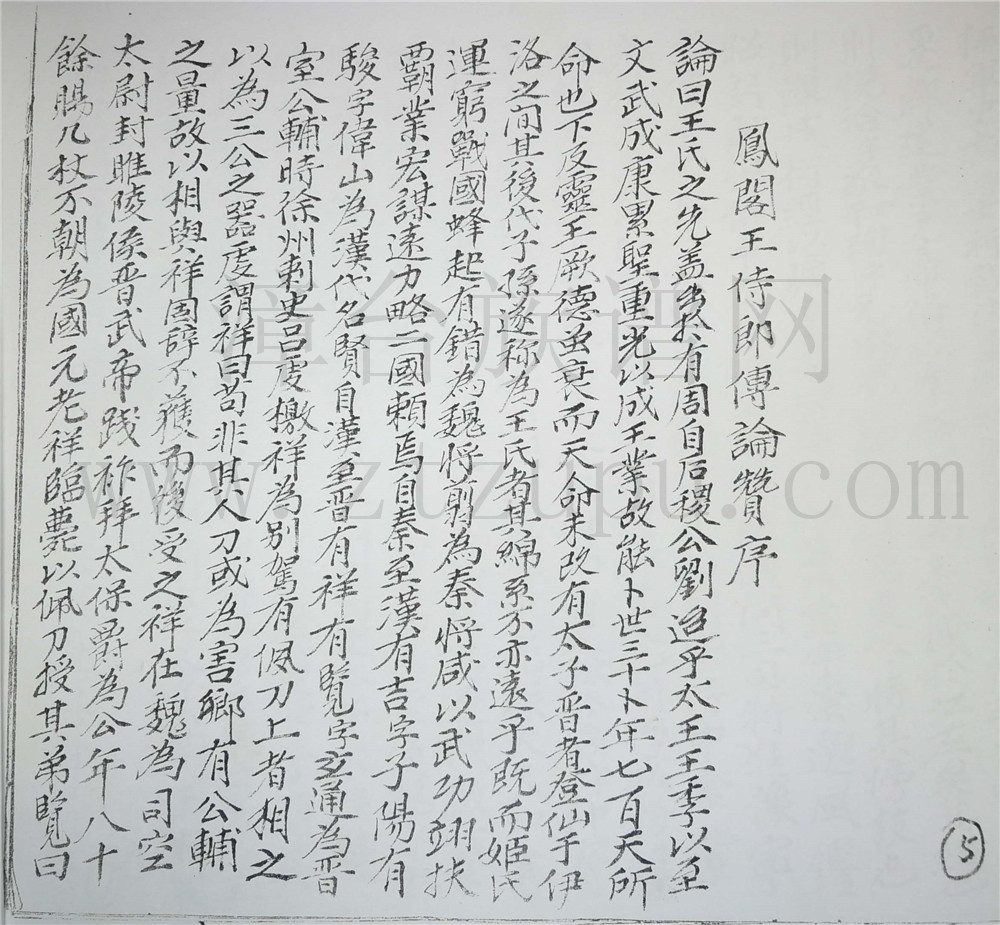 鳳閣王侍郎傳論贊序
論曰王氏之先盖出於有周自后稷公劉迨乎太王王季以至
文武成康累聖重光以成王業故能卜世三十卜年七百天所
命也下及靈王厥德虽衰而天命未改有太子晋者登仙于伊
洛之间其後代子孫遂称為王氏者其綿系不亦遠乎既而姬氏
運窮戰國蜂起有錯為魏将剪為秦将咸以武功翊扶
覇業宏謀遠力略二國頼焉自秦至漢有吉字子陽有
駿字偉山為漢代名賢自漢至晋有祥有覽字玄通為晋
室公輔時徐州刺史吕虔檄祥為别駕有佩刀上者相之
以為三公之器虔謂祥曰苟非其人刀或為害鄉有公輔
之量故以相與祥固辞不獲而後受之祥在魏為司空
太尉封睢陵侯晋武帝践祚拜太保爵為公年八十
餘賜几杖不朝為國元老祥臨薨以佩刀授其弟覽曰
15
章台族谱网
www.ztzupu.com